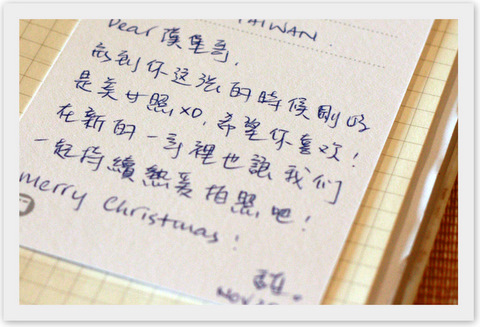 TAIWAN.
Dear 漢堡哥,
到你这張的時候剛好
是美女照XD,希望你喜欢!
在新的一年裡也讓我们
一起持續熱爱拍照吧!
merry christmas!
NOV